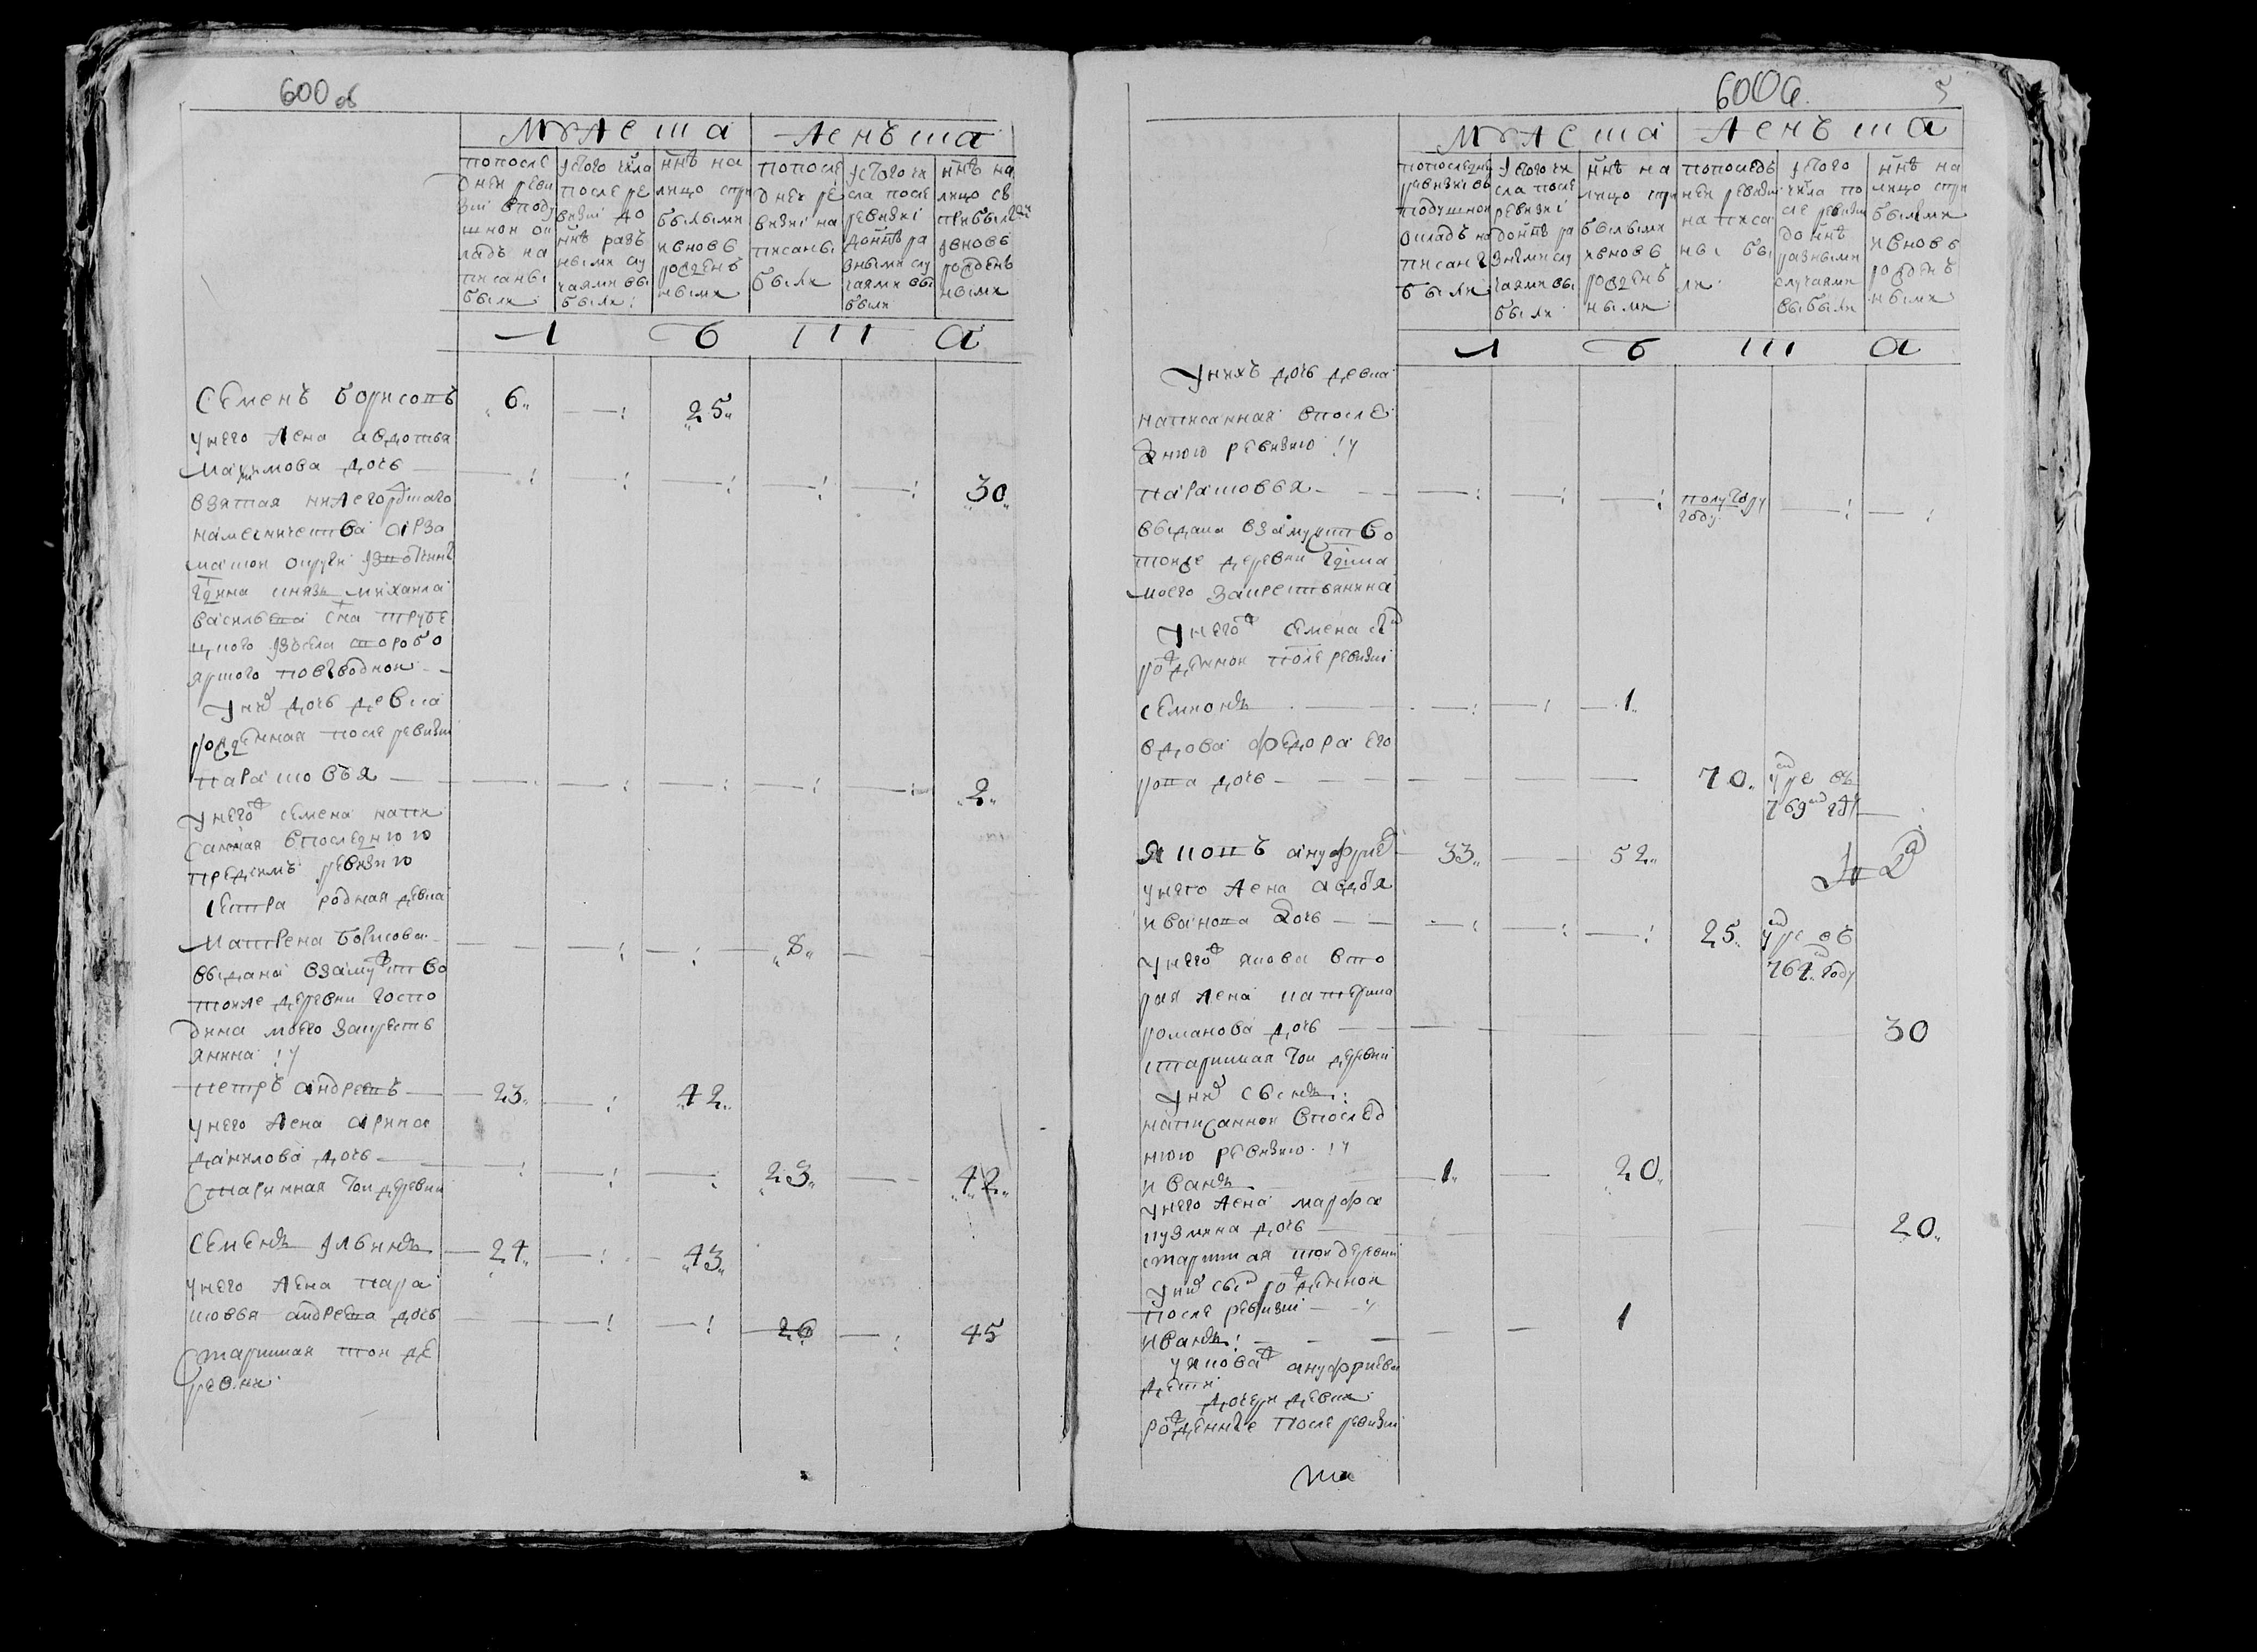 600 об
мужеска женска
попосле
дней реви
зиі вподу
шной ок
ладъ на
писаны
были
ізтого числа
после ре
визиі до
ннѣ разъ
ными слу
чаями вы
были
ннѣ на
лицо спри
былыми
ивновь
рожденъ
ными
попосле
дней ре
визиі на
писаны
были
ізтого чи
сла после
ревизиі
доннѣ ра
зными слу
чаями вы
были
ннѣ на
лицо съ
прибылы
ми
івновь
рожденъ
ными
л ѣ т а
Семенъ борисовъ 6 25
унего жена авдотья
Максимова дочь 30
взятая нижегородского
намесничества арза
маской округи
гдина князь михаила
васильева сна трубе
цкого ізъсела
поотводной
унихъ дочь девка
рожденная после ревизиі
парасковья 2
унегож семена напи
санная впоследнюю
предсимъ ревизию
сестра родная девка
Матрена борисова 8
выдана взамужство
тойже деревни госпо
дина моего закресть
янина
петръ андреевъ 23 42
унего жена арина
данилова дочь 23 42
старинная той деревни
Семенъ ильинъ 24 43
унего жена пара
сковья андреева дочь 26 45
старинная той де
ревни
600б. 5
мужеска женска
попоследней
ревизиі въ
подушной
окладъ на
писаны
были
ізтого чи
сла после
ревизиі
доннѣ ра
зными слу
чаями вы
были
ннѣ на
лицо спри
былыми
ивновь
рожденъ
ными
попоследъ
ней ревизиі
написа
ны бы
ли
ізтого
числа по
сле ревизиі
доннѣ
разными
случаями
выбыли
ннѣ на
лицо спри
былыми
ивновь
рожденъ
ными
л ѣ т а
унихъ дочь девка
написанная впосле
днюю ревизию
парасковья полутору
году
выдана взамужство
тойже деревни гдина
моего закрестьянина
унегож семена снъ
рожденной после ревизиі
семионъ 1
вдова федора его
рова дочь 70 умре въ
769м году
яковъ ануфриев 33 52
унего жена авдотья
иванова дочь 25 умре въ
764м году
унегож якова вто
рая жена катерина
романова дочь 30
старинная той деревни
унихъ сынъ
написанной впослед
нюю ревизию
иванъ 1 20
унего жена марфа
кузмина дочь 20
старинная той деревни
унихъ сын рожденной
после ревизиі
иванъ 1
уяковаж ануфриева
дети
дочери девки
рожденные после ревизиі